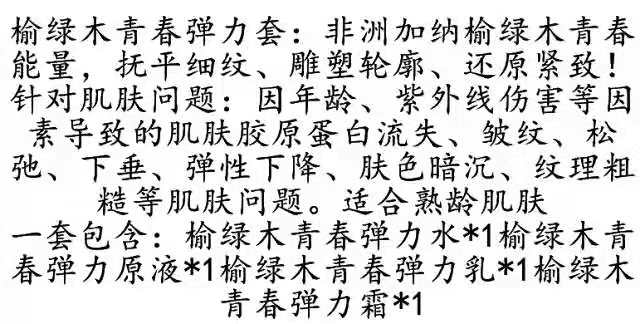 榆绿木青春弹力套：非洲加纳榆绿木青春
能量，抚平细纹、雕塑轮廓、还原紧致！
针对肌肤问题：因年龄、紫外线伤害等因
素导致的肌肤胶原蛋白流失、皱纹、松
弛、下垂、弹性下降、肤色暗沉、纹理粗
糙等肌肤问题。适合熟龄肌肤
一套包含：榆绿木青春弹力水*1榆绿木青
春弹力原液*1榆绿木青春弹力乳*1榆绿木
青春弹力霜*1